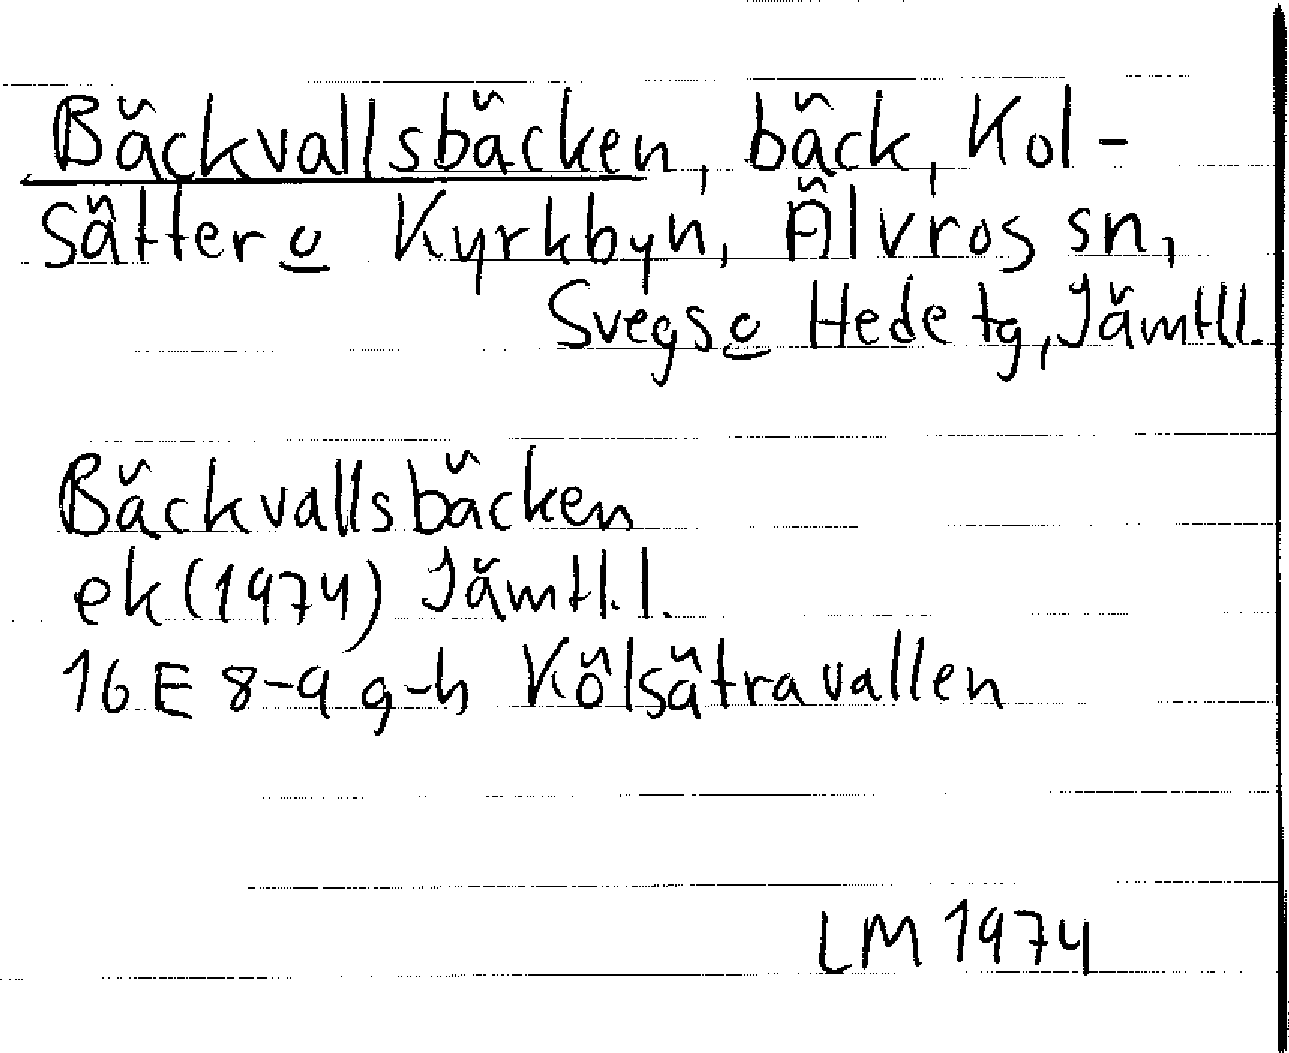 Bäckvallsbäcken, bäck, Kol-
sätter o Kyrkbyn, Älvros sn,
Svegs o Hede tg, Jämtll.
Bäckvallsbäcken
ek (1974) Jämtl.l.
16 E 8-9 g-h Kölsätravallen
LM 1974